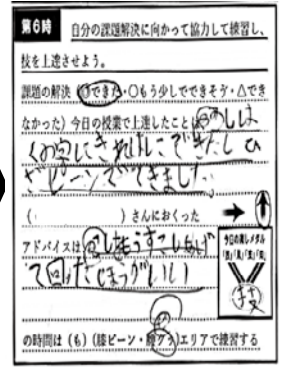 第6時 自分の課題解決に向かって協力して練習し、
技を上達させよう。
課題の解決 (◎できた・○もう少しでできそう・△でき
なかった) 今日の授業で上達したこと(
くの字にきれいにできたし ひ
ざピーンでできました
( )さんにおくった →
アドバイスは(もうすこしあげ
て回ったほうがいい
今日の美しメダル
技
の時間は(も)(膝ピーン・腰グラ)エリアで練習する